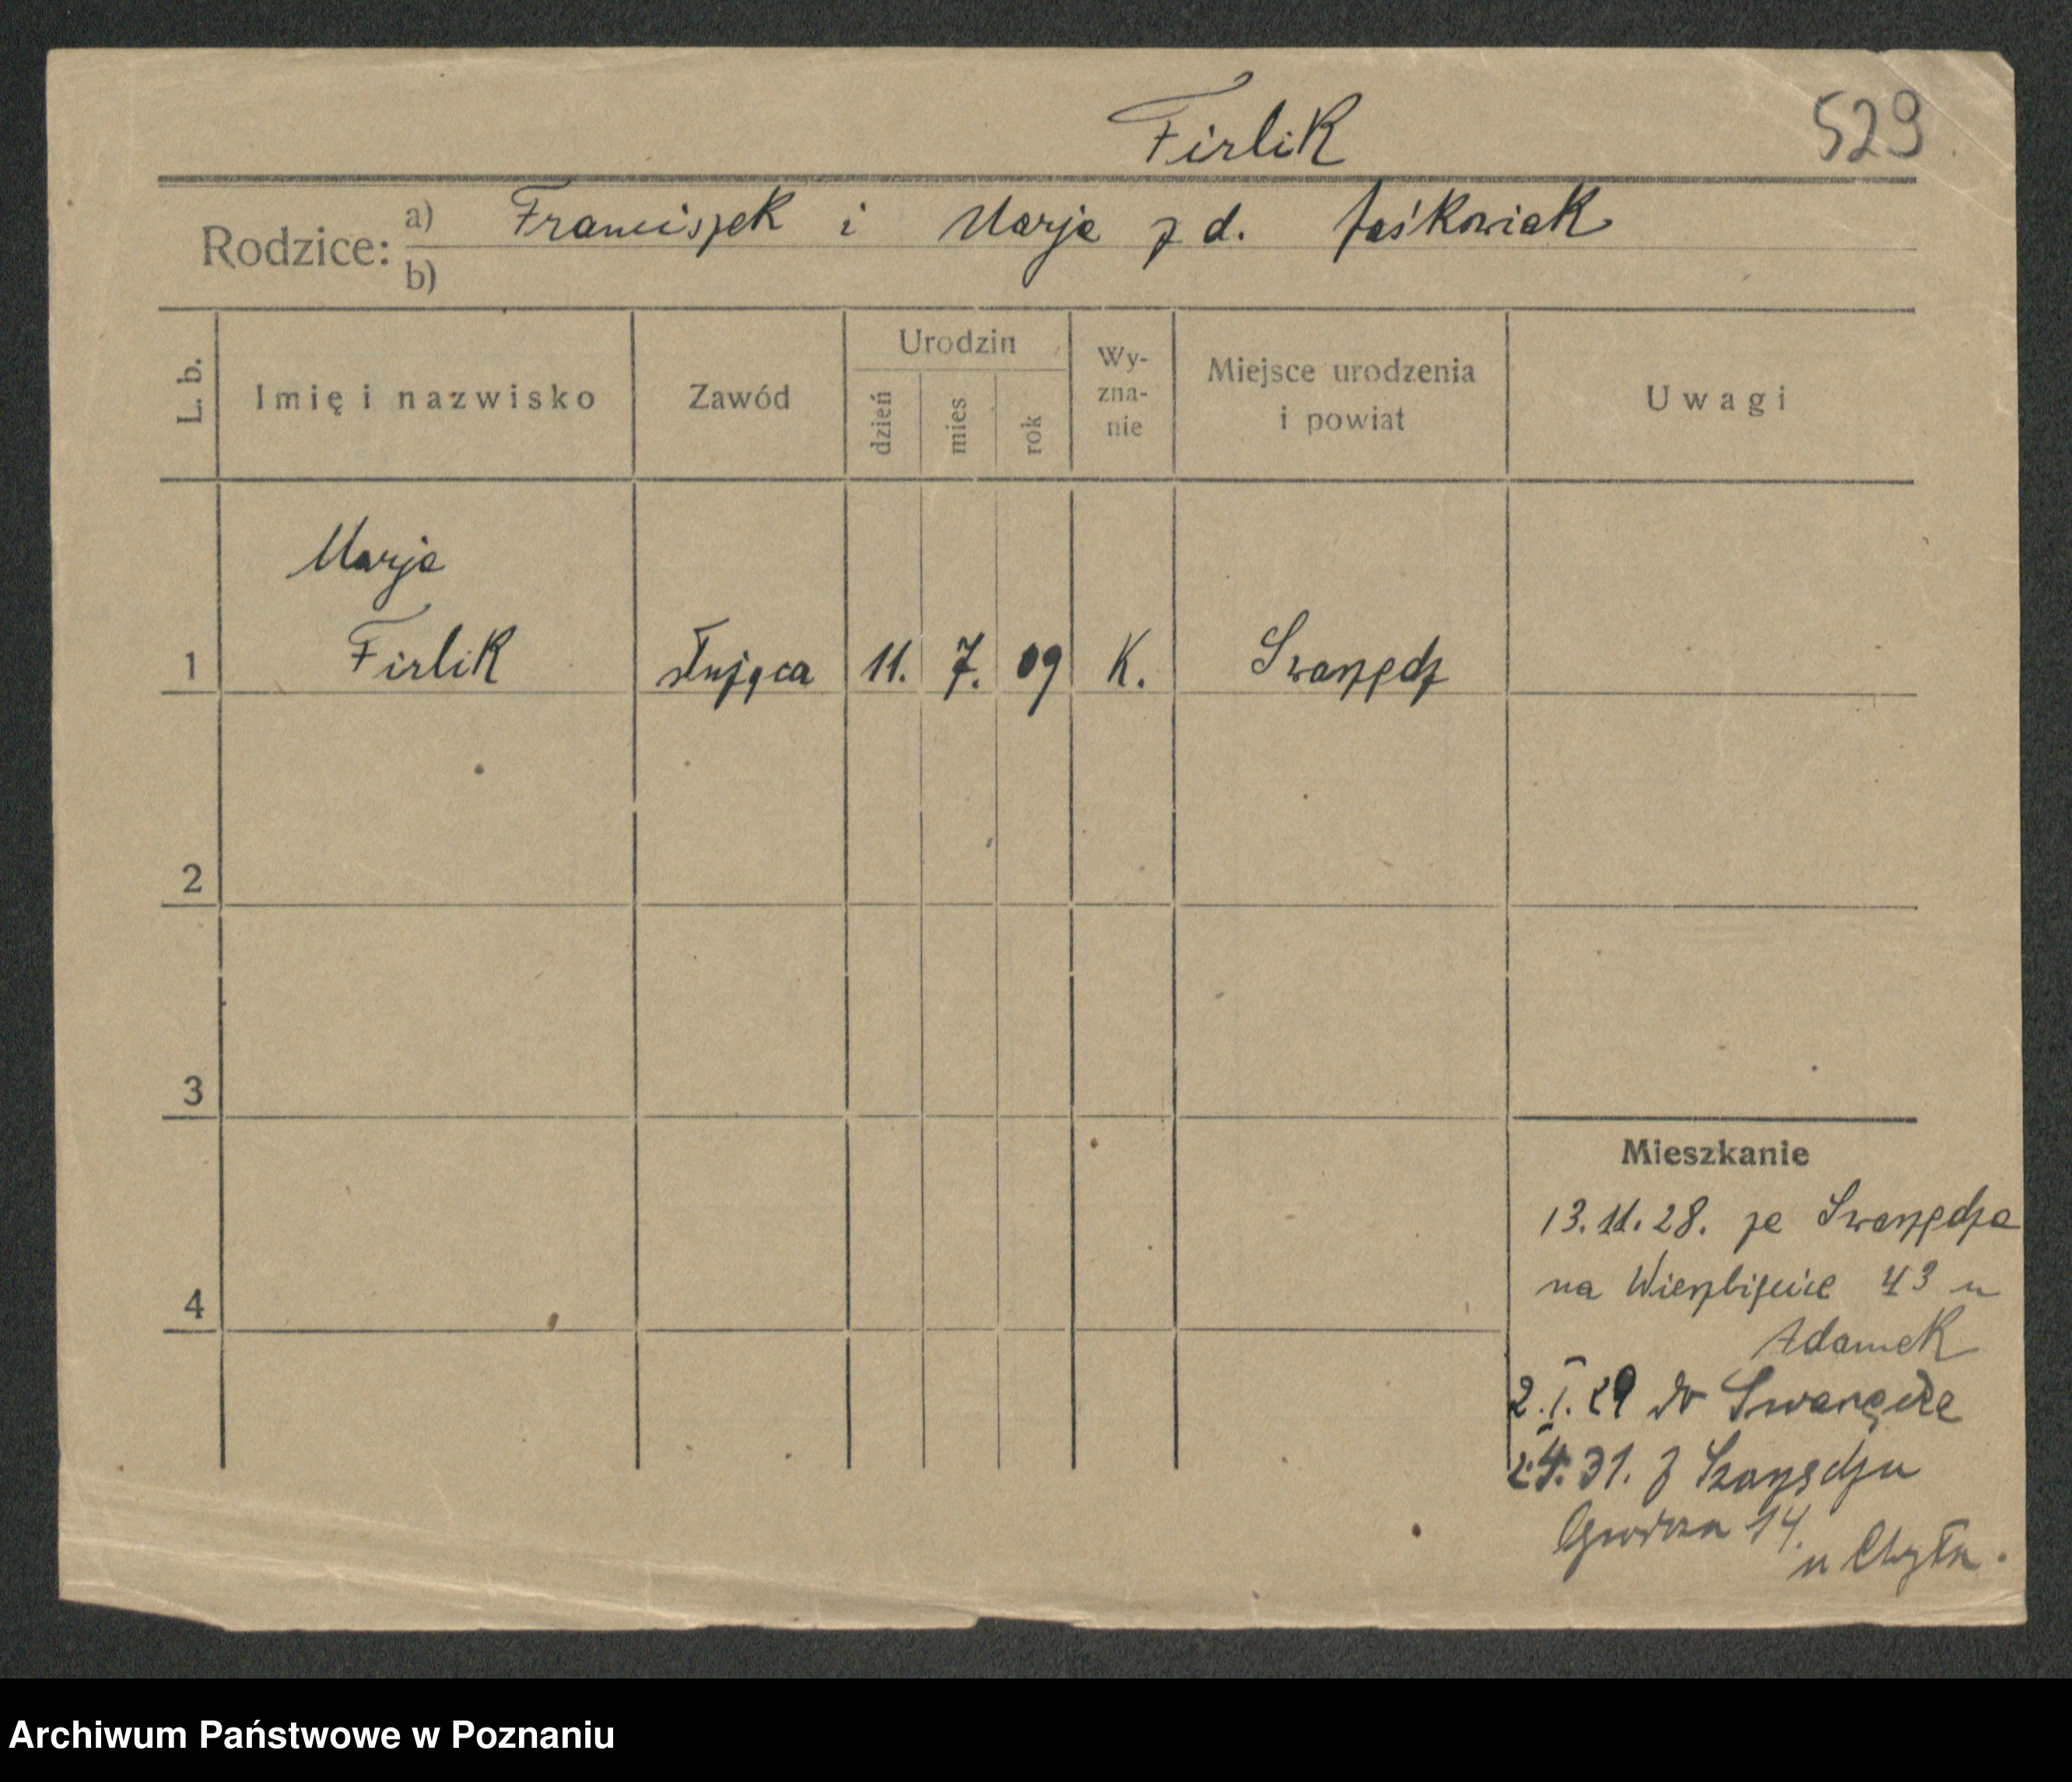 Firlik
529
Rodzice: a) Franciszek i Marja z d. Jaśkowiak
b)
L. b.
Imię i nazwisko
Zawód
Urodzin
dzień
mies
rok
Wy-
zna-
nie
Miejsce urodzenia
i powiat
Uwagi
Marja
1 Firlik służąca 11. 7. 09 K. Swarzędz
2
3
4
Mieszkanie
13.11.28. ze Swarzędza
na Wierzbięcice 43 u
Adamek
2.I.29 do Swarzędza
31. z Swarzędzu
14.
u
Archiwum Państwowe w Poznaniu